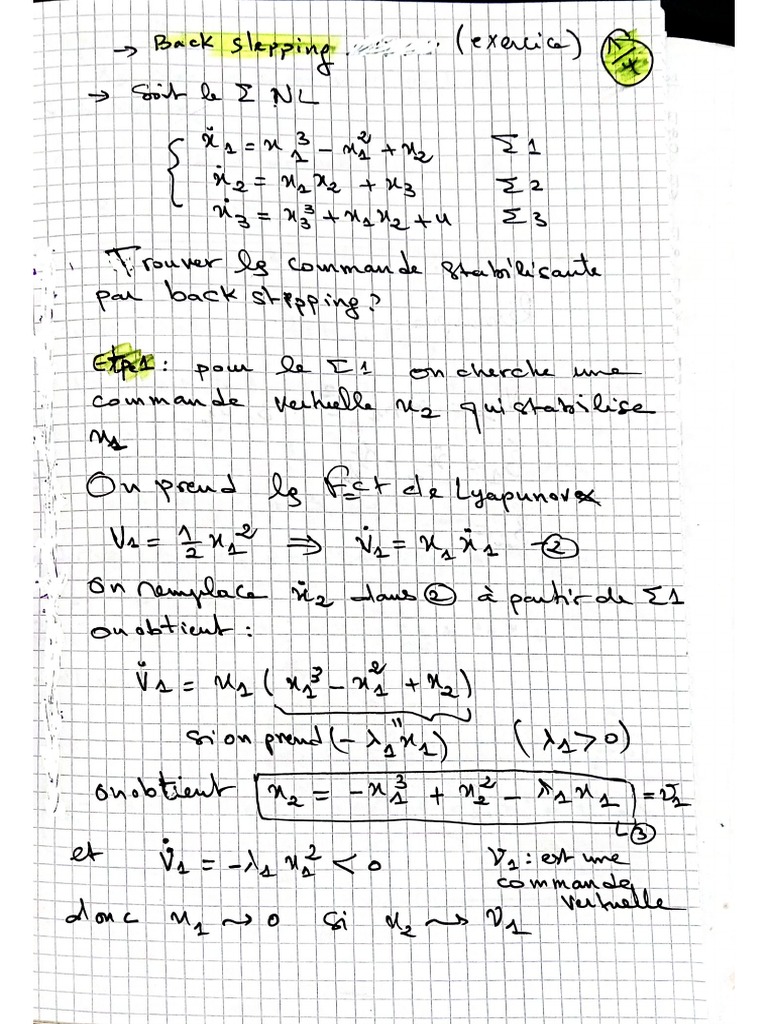 → Back stepping (exercice)
→ Soit le Σ NL
ẋ1 = x1³ - x1² + x2 Σ1
ẋ2 = x1x2 + x3 Σ2
ẋ3 = x3³ + x1x2 + u Σ3
Trouver la commande stabilisante
par back stepping?
Etpe1: pour le Σ1 on cherche une
commande vertuelle x2 qui stabilise
x1
On prend la Fct de Lyapunov
V1 = 1/2 x1² ⇒ V̇1 = x1 ẋ1 -②
on remplace ẋ2 dans ② à partir de Σ1
on obtient :
V̇1 = x1 (x1³ - x1² + x2)
si on prend (-λ1 x1) (λ1 > 0)
on obtient x2 = -x1³ + x2² - λ1 x1 = v1
③
et V̇1 = -λ1 x1² < 0 v1 : est une
commande
vertuelle
donc x1 → 0 si x2 → v1